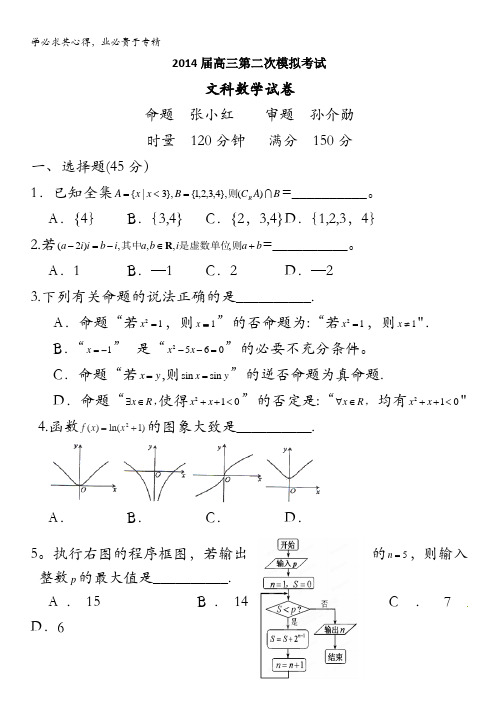 学必求其心得，业必贵于专精
2014届高三第二次模拟考试
文科数学试卷
命题 张小红 审题 孙介勋
时量 120分钟 满分 150分
一、选择题(45分）
1．已知全集A={x|x<3},B={1,2,3,4},则(C_R A)∩B=__________。
A．{4} B．{3,4} C．{2，3,4} D．{1,2,3，4}
2.若(a−2i)i=b−i,其中a,b∈R,i是虚数单位,则a+b=__________。
A．1 B．—1 C．2 D．—2
3.下列有关命题的说法正确的是__________.
A．命题“若x²=1，则x=1”的否命题为:“若x²=1，则x≠1".
B．“x=−1” 是“x²−5x−6=0”的必要不充分条件。
C．命题“若x=y,则sin x=sin y”的逆否命题为真命题.
D．命题“∃x∈R,使得x²+x+1<0”的否定是:“∀x∈R，均有x²+x+1<0"
4.函数f(x)=ln(x²+1)的图象大致是__________.
y y y y
O x O x O x O x
A． B． C． D．
5。执行右图的程序框图，若输出的n=5，则输入
整数p的最大值是__________.
A．15 B．14 C．7
D．6
开始
输入p
n=1，S=0
S<p?
否
是
S=S+2ⁿ⁻¹
输出n
n=n+1
结束